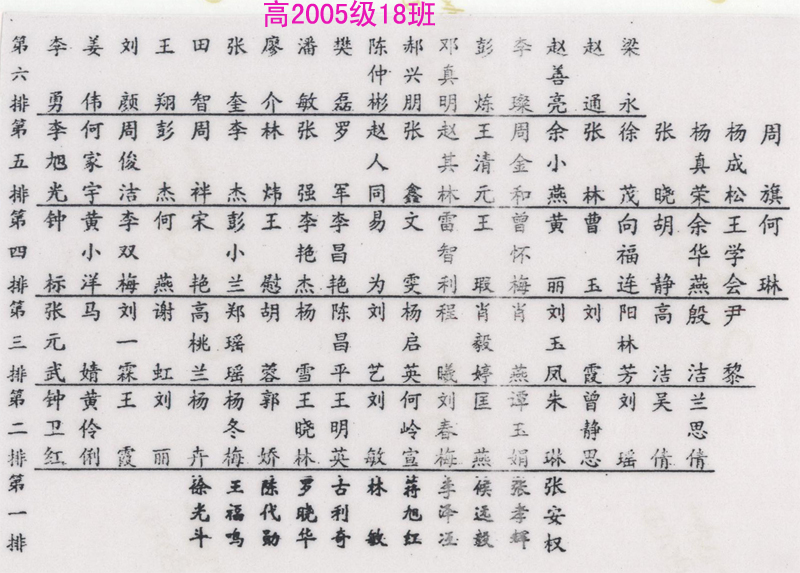 高2005级18班
第六排 李勇 姜伟 刘颜 王翔 田智 张奎 廖介 潘敏 樊磊 陈仲彬 郝兴朋 邓真明 彭炼 李璨 赵善亮 赵通 梁永
第五排 李旭光 何家宇 周俊洁 彭杰 周祥 李杰 林炜 张强 罗军 赵人同 张鑫 赵其林 王清元 周金和 余小燕 张林 徐茂 张晓 杨真荣 杨成松 周旗
第四排 钟标 黄小洋 李双梅 何燕 宋艳 彭小兰 王慰 李艳杰 李昌艳 易为 文雯 雷智利 王瑕 曾怀梅 黄丽 曹玉 向福连 胡静 余华燕 王学会 何琳
第三排 张元武 马婧 刘一霖 谢虹 高桃兰 郑瑶瑶 胡蓉 杨雪 陈昌平 刘艺 杨启英 程曦 肖毅婷 肖燕 刘玉凤 刘霞 阳林芳 高洁 殷洁 尹黎
第二排 钟卫红 黄伶俐 王霞 刘丽 杨卉 杨冬梅 郭娇 王晓林 王明英 刘敏 何岭宣 刘春梅 匡燕 谭玉娟 朱琳 曾静思 刘瑶 吴倩 兰思倩
第一排 徐光斗 王福鸣 陈代勋 罗晓华 古利奇 林敏 蒋旭红 李泽 侯远毅 张孝辉 张安权